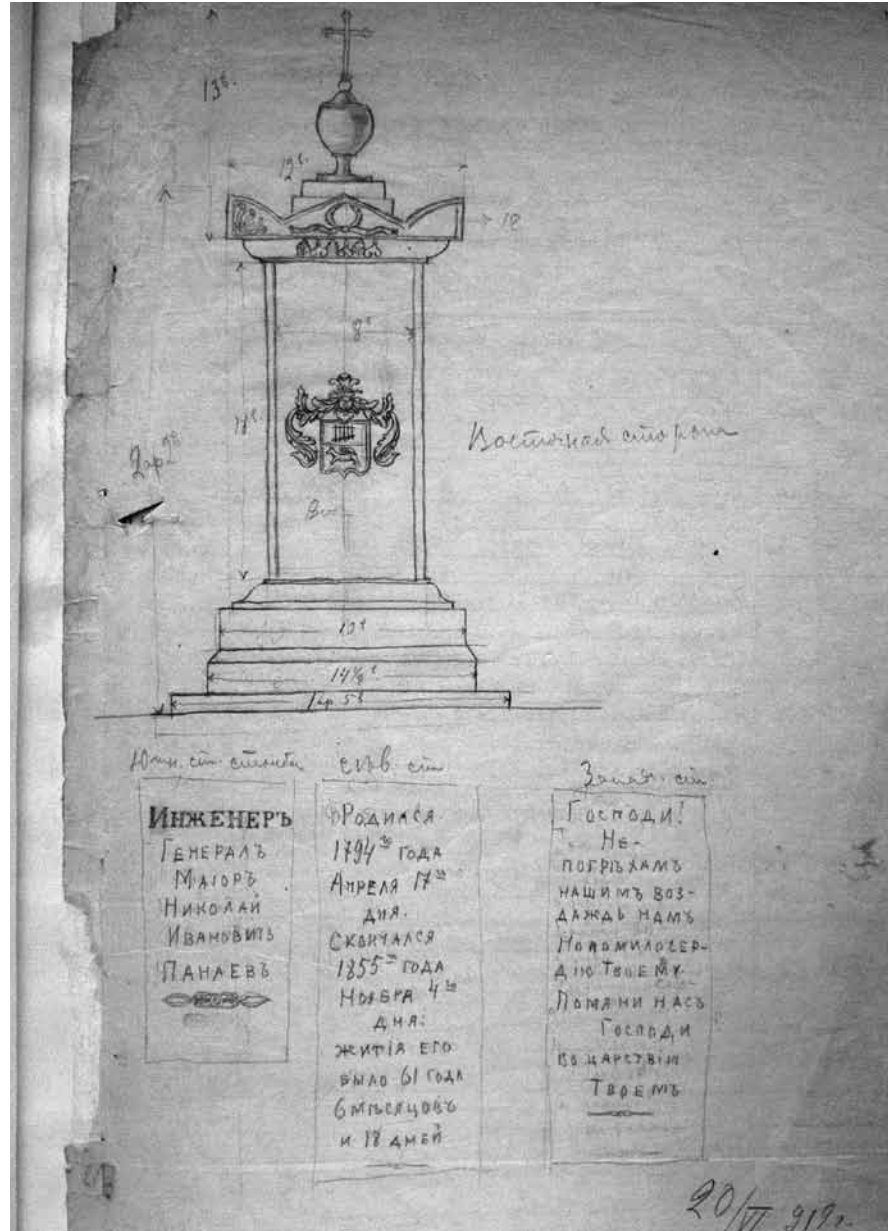 13в.
12в.
18
8в
Восточная сторона
Вос
10в
14½в
1ар. 5в
Южн. ст. столба
ИНЖЕНЕРЪ
ГЕНЕРАЛЪ
МАIОРЪ
НИКОЛАЙ
ИВАНОВИЧЪ
ПАНАЕВЪ
Сѣв. ст
РОДИЛСЯ
1794го ГОДА
АПРЕЛЯ 17го
ДНЯ.
СКОНЧАЛСЯ
1855го ГОДА
НОЯБРЯ 4го
ДНЯ:
ЖИТIЯ ЕГО
БЫЛО 61 ГОДА
6 МѢСЯЦОВЪ
И 18 ДНЕЙ
Запад. ст
ГОСПОДИ!
НЕ-
ПОГРѢХАМЪ
НАШИМЪ ВОЗ-
ДАЖДЬ НАМЪ
НО ПОМИЛОСЕР-
ДIЮ ТВОЕМУ
ПОМЯНИ НАСЪ
ГОСПОДИ
ВО ЦАРСТВIИ
ТВОЕМЪ
20/VI 912г